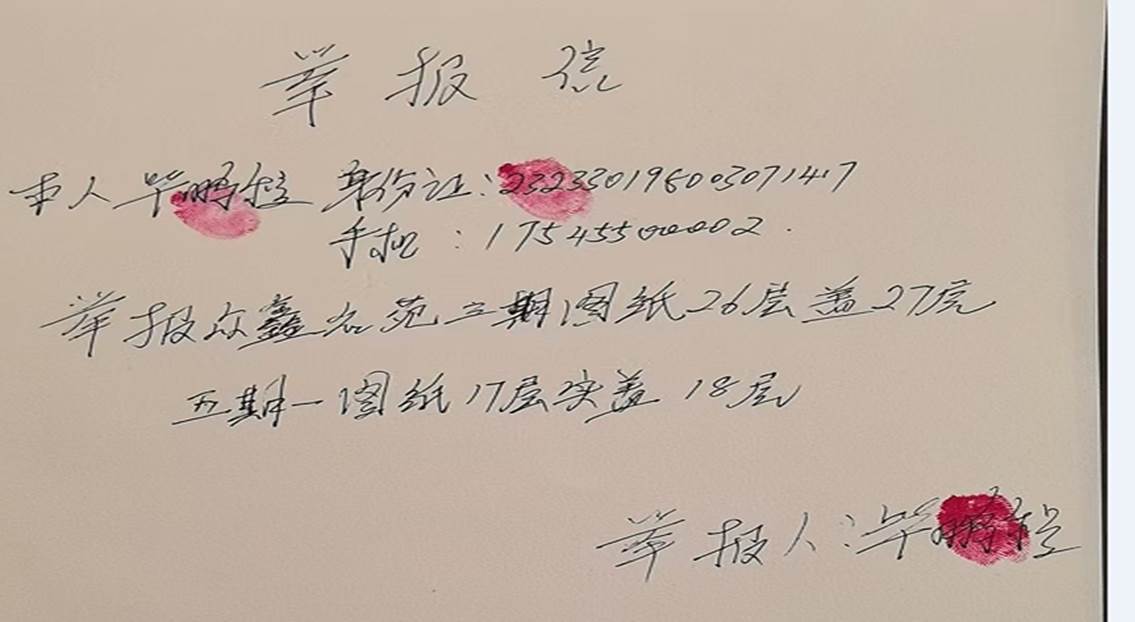 举报信
本人毕鹏程 身份证:232330196003071417
手机:17545500002.
举报众鑫名苑三期图纸26层盖27层
五期一图纸17层实盖18层
举报人:毕鹏程